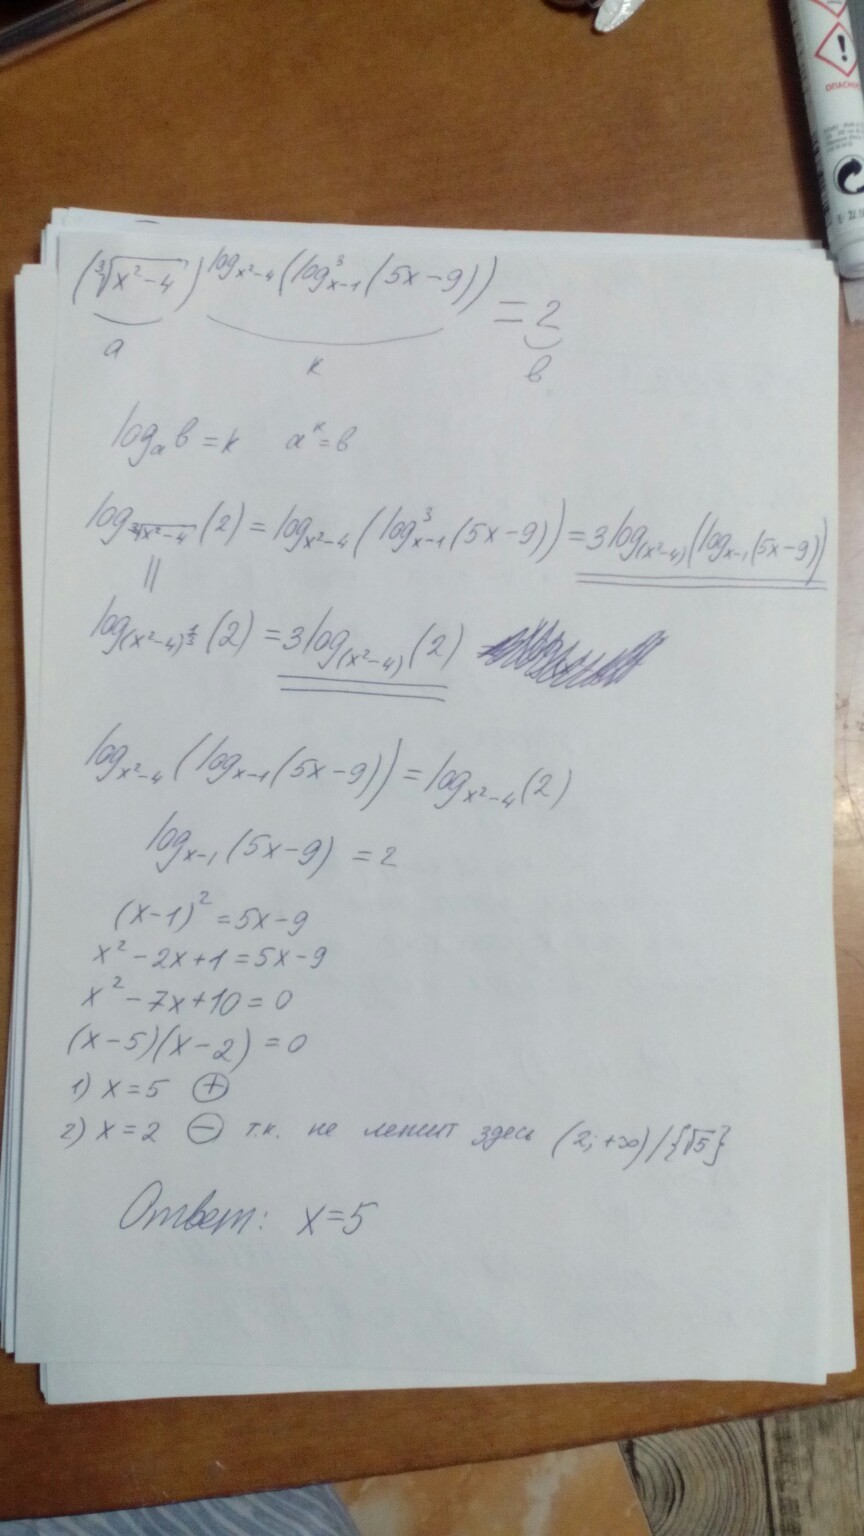 ОПАСНО
(∛(x²-4))^(log_{x²-4}(log³_{x-1}(5x-9))) = 2
a k в
log_a в = k a^k = в
log_{∛(x²-4)}(2) = log_{x²-4}(log³_{x-1}(5x-9)) = 3log_{(x²-4)}(log_{x-1}(5x-9))
||
log_{(x²-4)^{1/3}}(2) = 3log_{(x²-4)}(2)
log_{x²-4}(log_{x-1}(5x-9)) = log_{x²-4}(2)
log_{x-1}(5x-9) = 2
(x-1)² = 5x-9
x² - 2x + 1 = 5x - 9
x² - 7x + 10 = 0
(x-5)(x-2) = 0
1) x = 5 ⊕
2) x = 2 ⊖ т.к. не лежит здесь (2; +∞)/{√5}
Ответ: x = 5